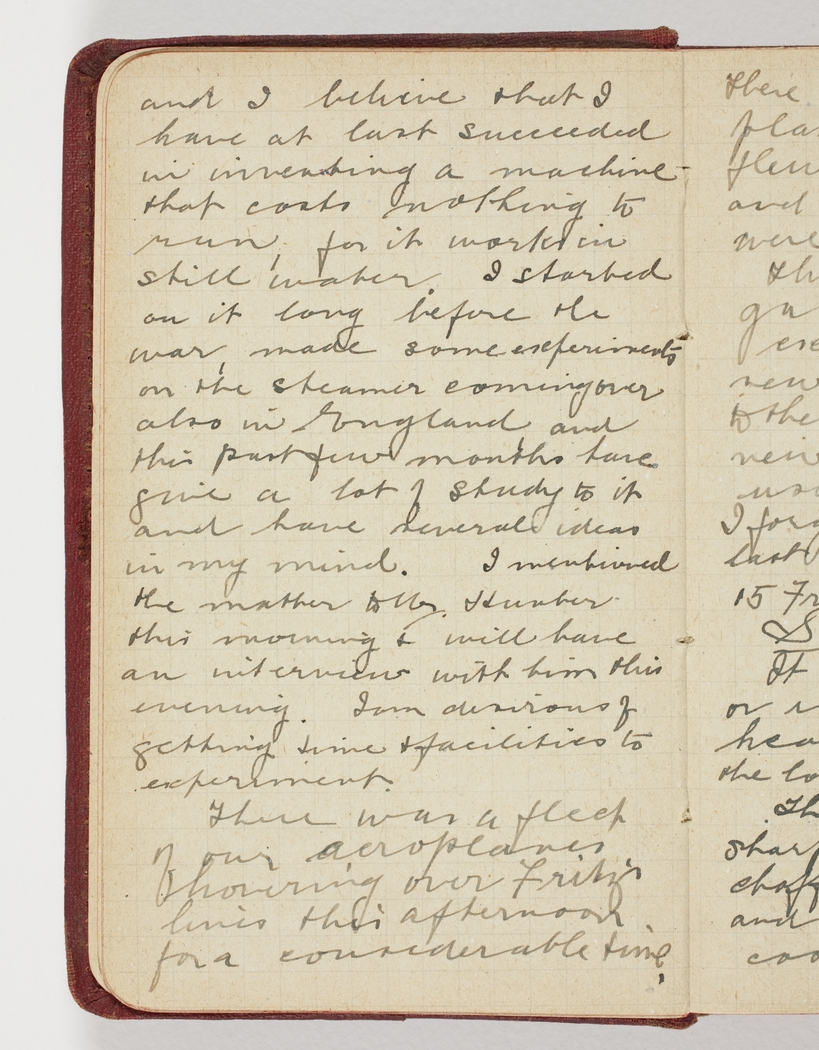 and I believe that I
have at last succeeded
in inventing a machine
that costs nothing to
run, for it works in
still water. I started
on it long before the
war, made some experiments
on the steamer coming over
also in England and
this past few months have
give a lot of study to it
and have several ideas
in my mind. I mentioned
the matter to Mr. Hunter
this morning & will have
an interview with him this
evening. I am desirous of
getting time & facilities to
experiment.
There was a fleet
of our aeroplanes
hovering over Fritz's
lines this afternoon
for a considerable time,
there
and
were
to the
15
It
the
and